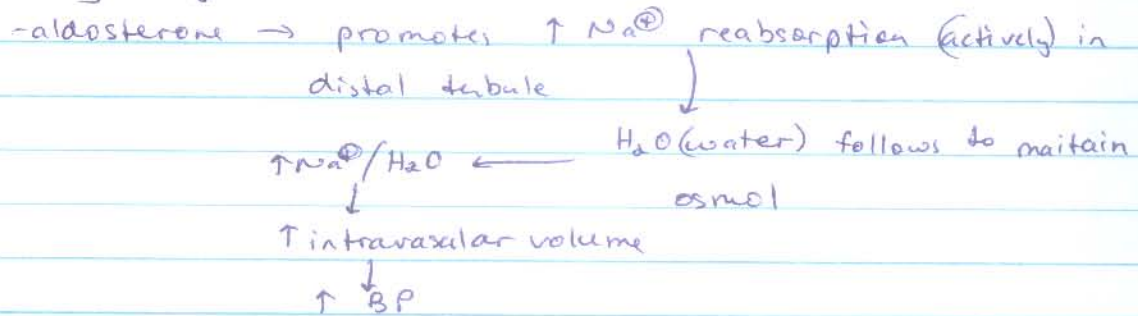 -aldosterone → promotes ↑ Na⊕ reabsorption (actively) in
distal tubule
↓
H₂O (water) follows to maitain
↑Na⊕/H₂O ←
osmol
↓
↑ intravasular volume
↓
↑ BP